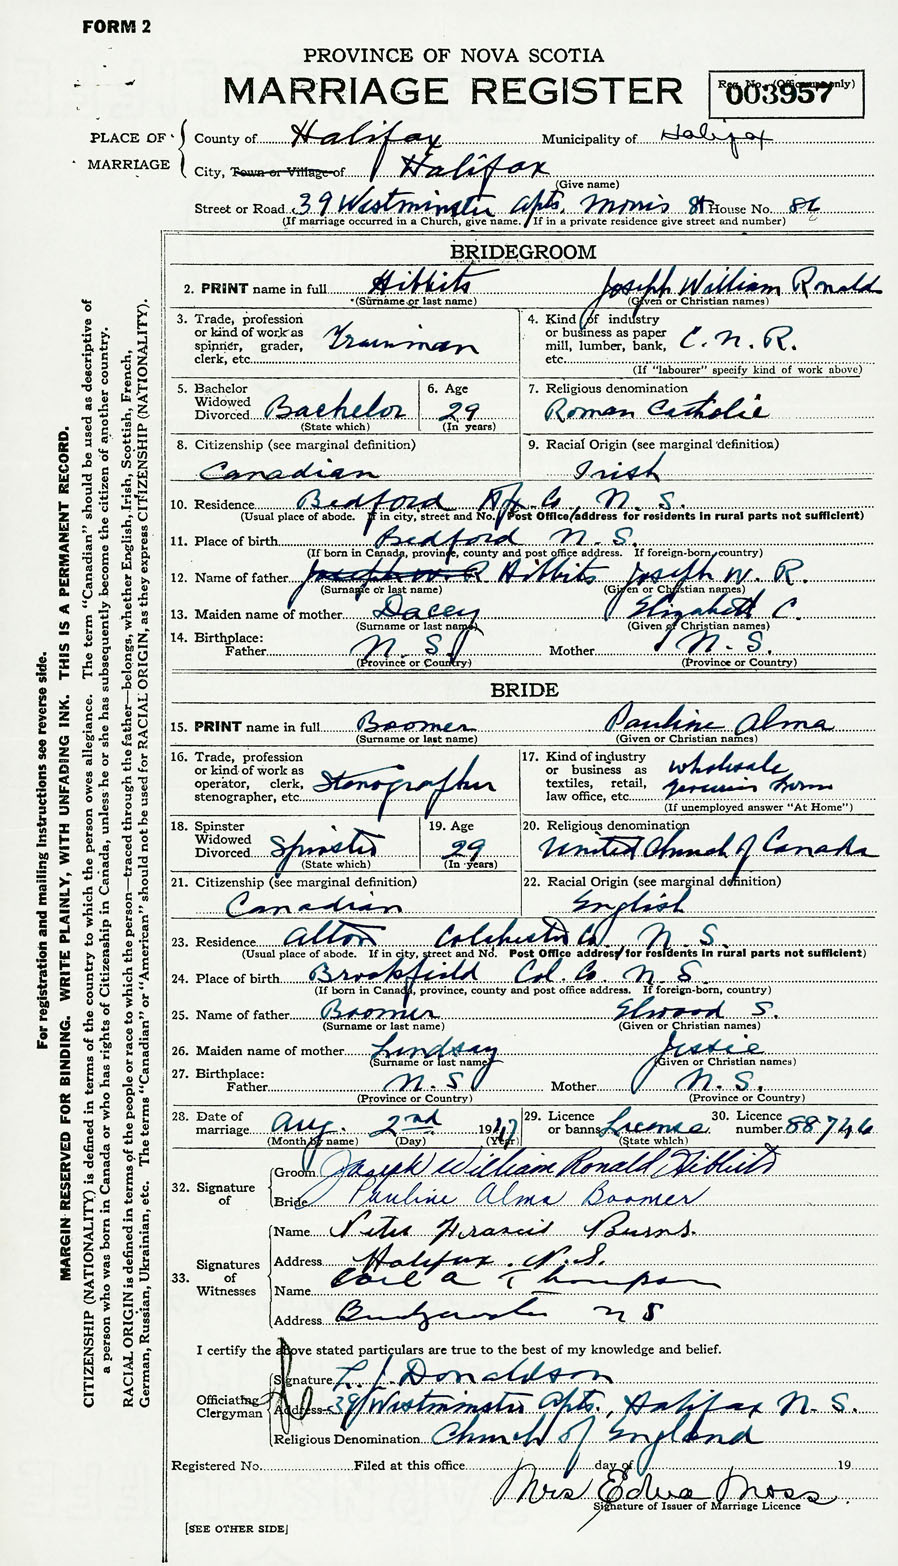 FORM 2
PROVINCE OF NOVA SCOTIA
MARRIAGE REGISTER
Reg. No. (Office use only)
003957
PLACE OF MARRIAGE
County of Halifax Municipality of Halifax
City, Town or Village of Halifax
(Give name)
Street or Road 39 Westminster Apts. Morris St House No.
(If marriage occurred in a Church, give name. If in a private residence give street and number)
BRIDEGROOM
2. PRINT name in full Hibbits Joseph William Ronald
(Surname or last name) (Given or Christian names)
3. Trade, profession or kind of work as spinner, grader, clerk, etc. Trainman
4. Kind of industry or business as paper mill, lumber, bank, etc. C. N. R.
(If "labourer" specify kind of work above)
5. Bachelor Widowed Divorced Bachelor
(State which)
6. Age 29
(In years)
7. Religious denomination Roman Catholic
8. Citizenship (see marginal definition) Canadian
9. Racial Origin (see marginal definition) Irish
10. Residence Bedford Hfx. Co., N. S.
(Usual place of abode. If in city, street and No. Post Office address for residents in rural parts not sufficient)
11. Place of birth Bedford N. S.
(If born in Canada, province, county and post office address. If foreign-born, country)
12. Name of father Joseph W. R Hibbits Joseph W. R.
(Surname or last name) (Given or Christian names)
13. Maiden name of mother Dacey Elizabeth C.
(Surname or last name) (Given or Christian names)
14. Birthplace:
Father N. S. Mother N. S.
(Province or Country) (Province or Country)
BRIDE
15. PRINT name in full Boomer Pauline Alma
(Surname or last name) (Given or Christian names)
16. Trade, profession or kind of work as operator, clerk, stenographer, etc. Stenographer
17. Kind of industry or business as textiles, retail, law office, etc. wholesale
(If unemployed answer "At Home")
18. Spinster Widowed Divorced Spinster
(State which)
19. Age 29
(In years)
20. Religious denomination United Church of Canada
21. Citizenship (see marginal definition) Canadian
22. Racial Origin (see marginal definition) English
23. Residence Alton Colchester Co. N. S.
(Usual place of abode. If in city, street and No. Post Office address for residents in rural parts not sufficient)
24. Place of birth Brookfield Col. Co. N. S.
(If born in Canada, province, county and post office address. If foreign-born, country)
25. Name of father Boomer Elwood S.
(Surname or last name) (Given or Christian names)
26. Maiden name of mother Lindsay Jessie
(Surname or last name) (Given or Christian names)
27. Birthplace:
Father N. S Mother N. S.
(Province or Country) (Province or Country)
28. Date of marriage Aug. 2nd 1947
(Month by name) (Day) (Year)
29. Licence or banns License.
(State which)
30. Licence number 88746
32. Signature of
Groom Joseph William Ronald Hibbits
Bride Pauline Alma Boomer
33. Signatures of Witnesses
Name Francis Burns.
Address Halifax. N. S.
Name A Thompson
Address Bridgewater N S
I certify the above stated particulars are true to the best of my knowledge and belief.
Officiating Clergyman
Signature Donaldson
Address 39 Westminster Apts., Halifax N. S.
Religious Denomination Church of England
Registered No. Filed at this office day of 19
Mrs Edna Moss.
Signature of Issuer of Marriage Licence
[SEE OTHER SIDE]
For registration and mailing instructions see reverse side.
MARGIN RESERVED FOR BINDING. WRITE PLAINLY, WITH UNFADING INK. THIS IS A PERMANENT RECORD.
CITIZENSHIP (NATIONALITY) is defined in terms of the country to which the person owes allegiance. The term "Canadian" should be used as descriptive of
a person who was born in Canada or who has rights of Citizenship in Canada, unless he or she has subsequently become the citizen of another country.
RACIAL ORIGIN is defined in terms of the people or race to which the person—traced through the father—belongs, whether English, Irish, Scottish, French,
German, Russian, Ukrainian, etc. The terms "Canadian" or "American" should not be used for RACIAL ORIGIN, as they express CITIZENSHIP (NATIONALITY).